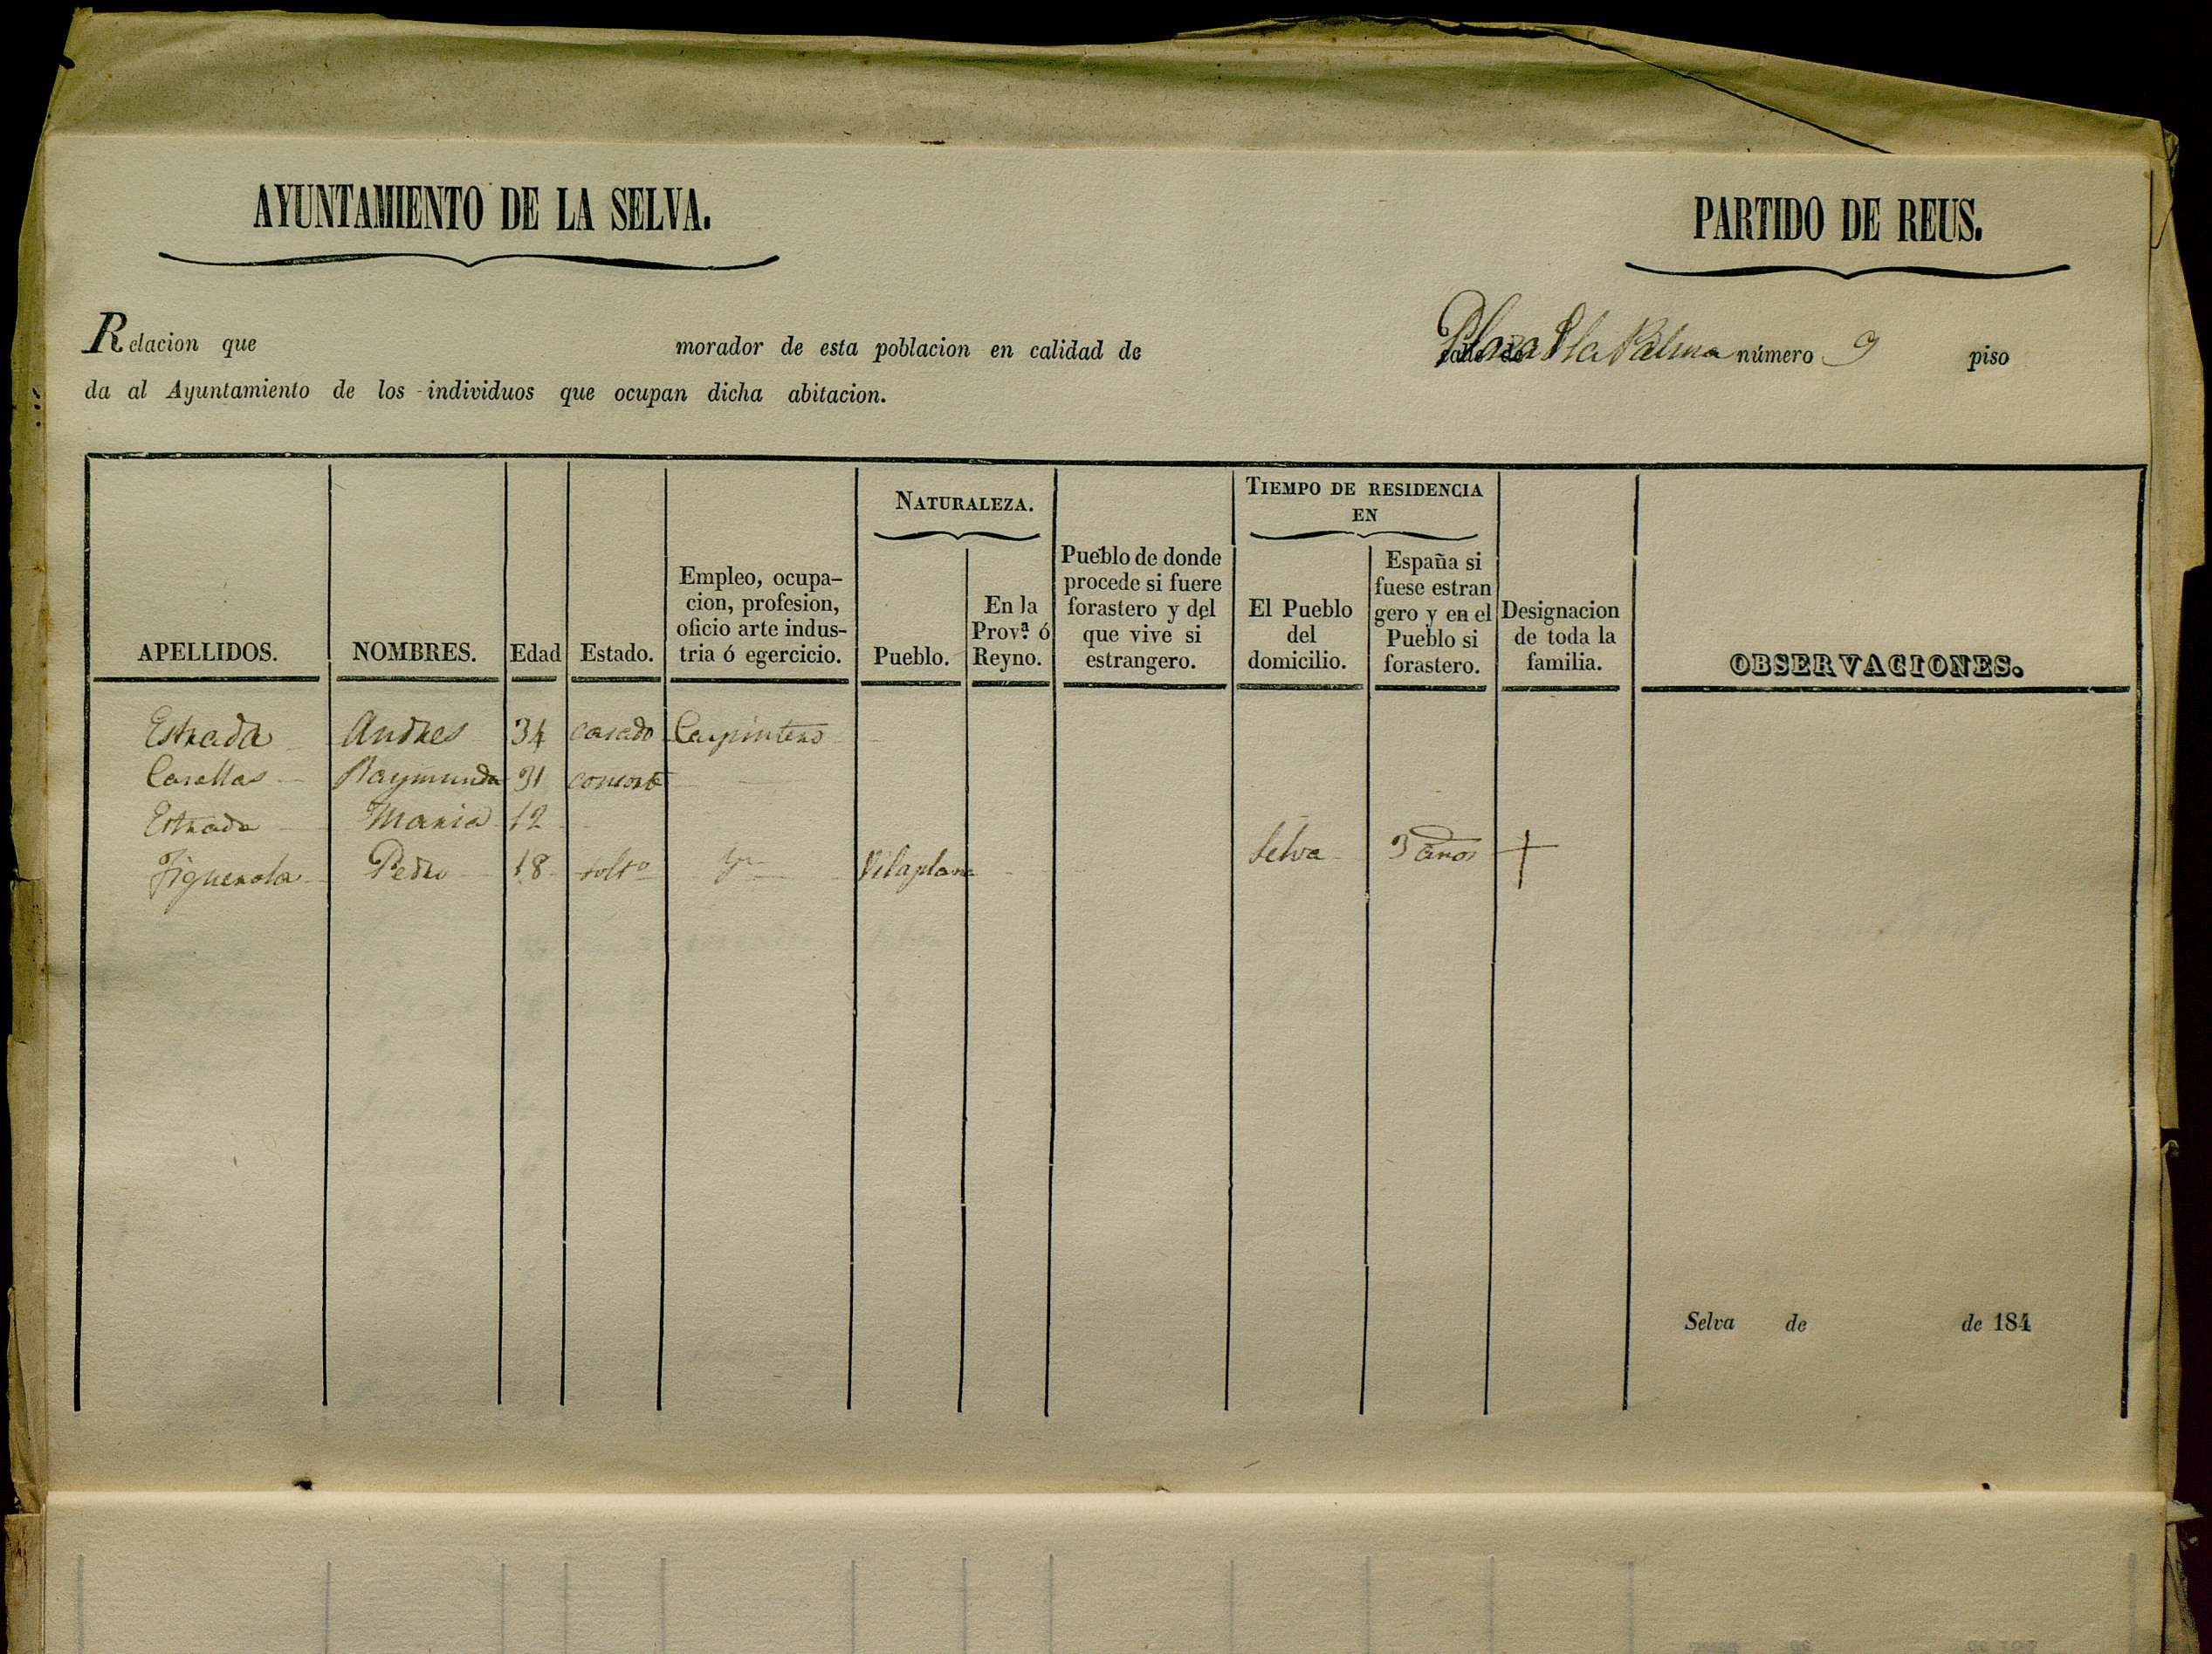 AYUNTAMIENTO DE LA SELVA.
PARTIDO DE REUS.
Relacion que morador de esta poblacion en calidad de Plaza d la Palma número 9 piso
da al Ayuntamiento de los individuos que ocupan dicha abitacion.
APELLIDOS.
NOMBRES.
Edad
Estado.
Empleo, ocupa-
cion, profesion,
oficio arte indus-
tria ó egercicio.
NATURALEZA.
Pueblo.
En la
Prov.ª ó
Reyno.
Pueblo de donde
procede si fuere
forastero y del
que vive si
estrangero.
TIEMPO DE RESIDENCIA
EN
El Pueblo
del
domicilio.
España si
fuese estran
gero y en el
Pueblo si
forastero.
Designacion
de toda la
familia.
OBSERVACIONES.
Estrada Andres 34 casado Carpintero
Casellas Raymunda 31 consorte
Estrada Maria 12
Figuerola Pedro 18 solto Vilaplana Selva 3 años
Selva de de 184